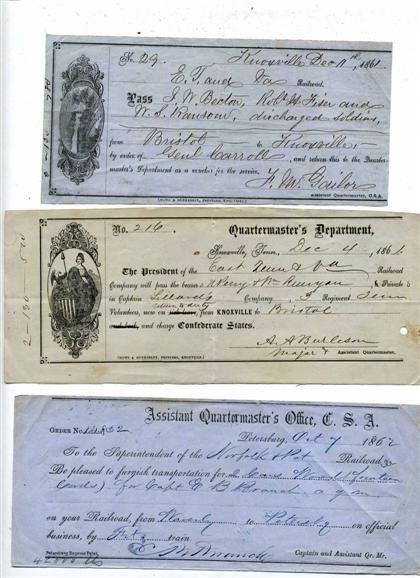 No. 29. Knoxville Dec 11th, 1861.
E. T. and Va Railroad,
Pass J. W. Becton, Robt H. and
W. S. Ransom, discharged soldiers,
from Bristol to Knoxville,
by order of Genl Carroll, and return this to the Quarter-
master's Department as a voucher for the service.
F. W. Gailor
Assistant Quartermaster, C.S.A.
No. 216. Quartermaster's Department,
Knoxville, Tenn., Dec 4 1861.
The President of the East Tenn & Va Railroad
Company will pass the bearer Privates
in Captain Company, 3 Regiment Tenn
Volunteers, now on from KNOXVILLE to Bristol
and charge Confederate States.
A. A. Burleson
Major & Assistant Quartermaster.
2-130-500
Assistant Quartermaster's Office, C. S. A.
ORDER No. 32 Petersburg, Oct 7 1862
To the Superintendent of the Norfolk & Pet Railroad
Be pleased to furnish transportation for 2 Cars Wood (fourteen
Cords) for Capt E B Branch a q m
on your Railroad, from Waverly to Petersbg on official
business, by Frt train.
E B Branch
Captain and Assistant Qr. Mr.
Petersburg Express Print.